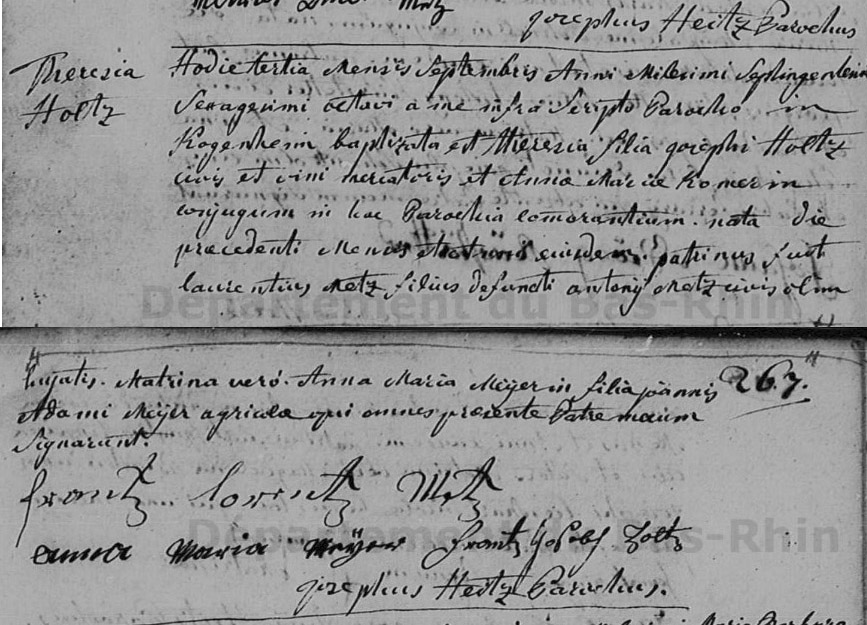 josephus Heitz Parochus
Theresia Holtz
Hodie tertia Mensis Septembris Anni Milesimi Septingentesim
Sexagesimi octavi a me infra Scripto Parocho in
Kogenheim baptizata est Theresia filia josephi Holtz
civis et vini mercatoris et Annæ Mariæ Romerin
conjugum in hac Parochia comorantium. nata die
præcedenti Mensis eiusdem. patrinus fuit
laurentius Metz filius defuncti antonij Metz civis olim
hujatis. Matrina veró. Anna Maria Meÿerin filia joannis
267.
Adami Meÿer agricolæ qui omnes præsente Patre mecum
Signarunt.
frantz lorentz Metz
anna Maria Meÿer frantz Josebh Holtz
josephus Heitz Parochus.
Departement du Bas-Rhin
Departement du Bas-Rhin